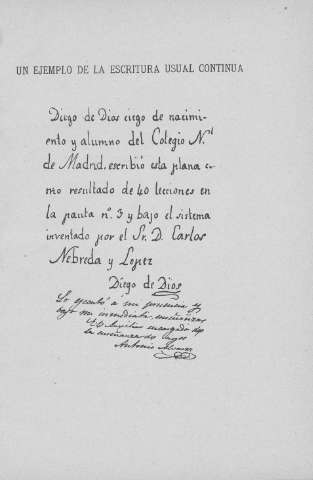 UN EJEMPLO DE LA ESCRITURA USUAL CONTINUA
Diego de Dios ciego de nacimi-
ento y alumno del Colegio N.l
de Madrid, escribió esta plana c-
mo resultado de 40 lecciones en
la pauta n.º 3 y bajo el sistema
inventado por el Sr. D. Carlos
Nebreda y Lopez
Diego de Dios
Lo ejecutó á mi presencia y
bajo mi inmediata enseñanza
El Auxiliar encargado de
la enseñanza de ciegos
Antonio Alvarez